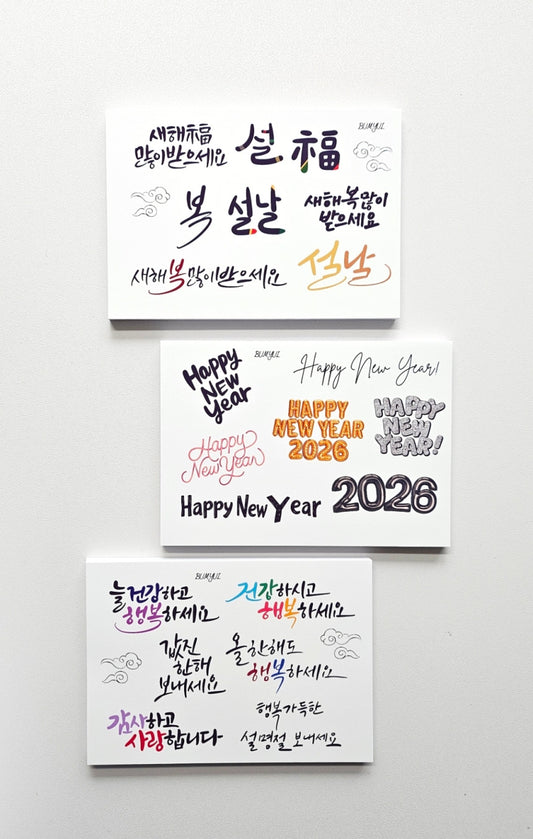 BUMYUL
새해福
많이받으세요
설
福
복
설날
새해복많이
받으세요
새해복많이받으세요
설날
BUMYUL
HAPPY
NEW
Year
Happy New Year!
HAPPY
NEW YEAR
2026
HAPPY
NEW
YEAR!
Happy
New Year
Happy New Year
2026
BUMYUL
늘건강하고
행복하세요
건강하시고
행복하세요
값진
한해
보내세요
올한해도
행복하세요
감사하고
사랑합니다
행복가득한
설명절 보내세요